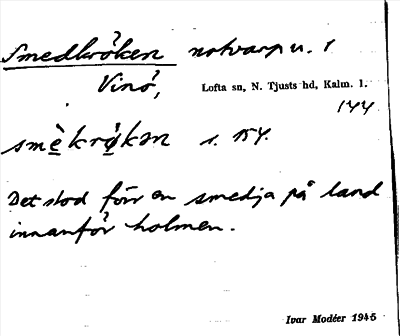 Smedkröken notvarp u. 1
Vinö, Lofta sn, N. Tjusts hd, Kalm. l.
144
smèkrǿkən s. 154.
Det stod förr en smedja på land
innanför holmen.
Ivar Modéer 1945